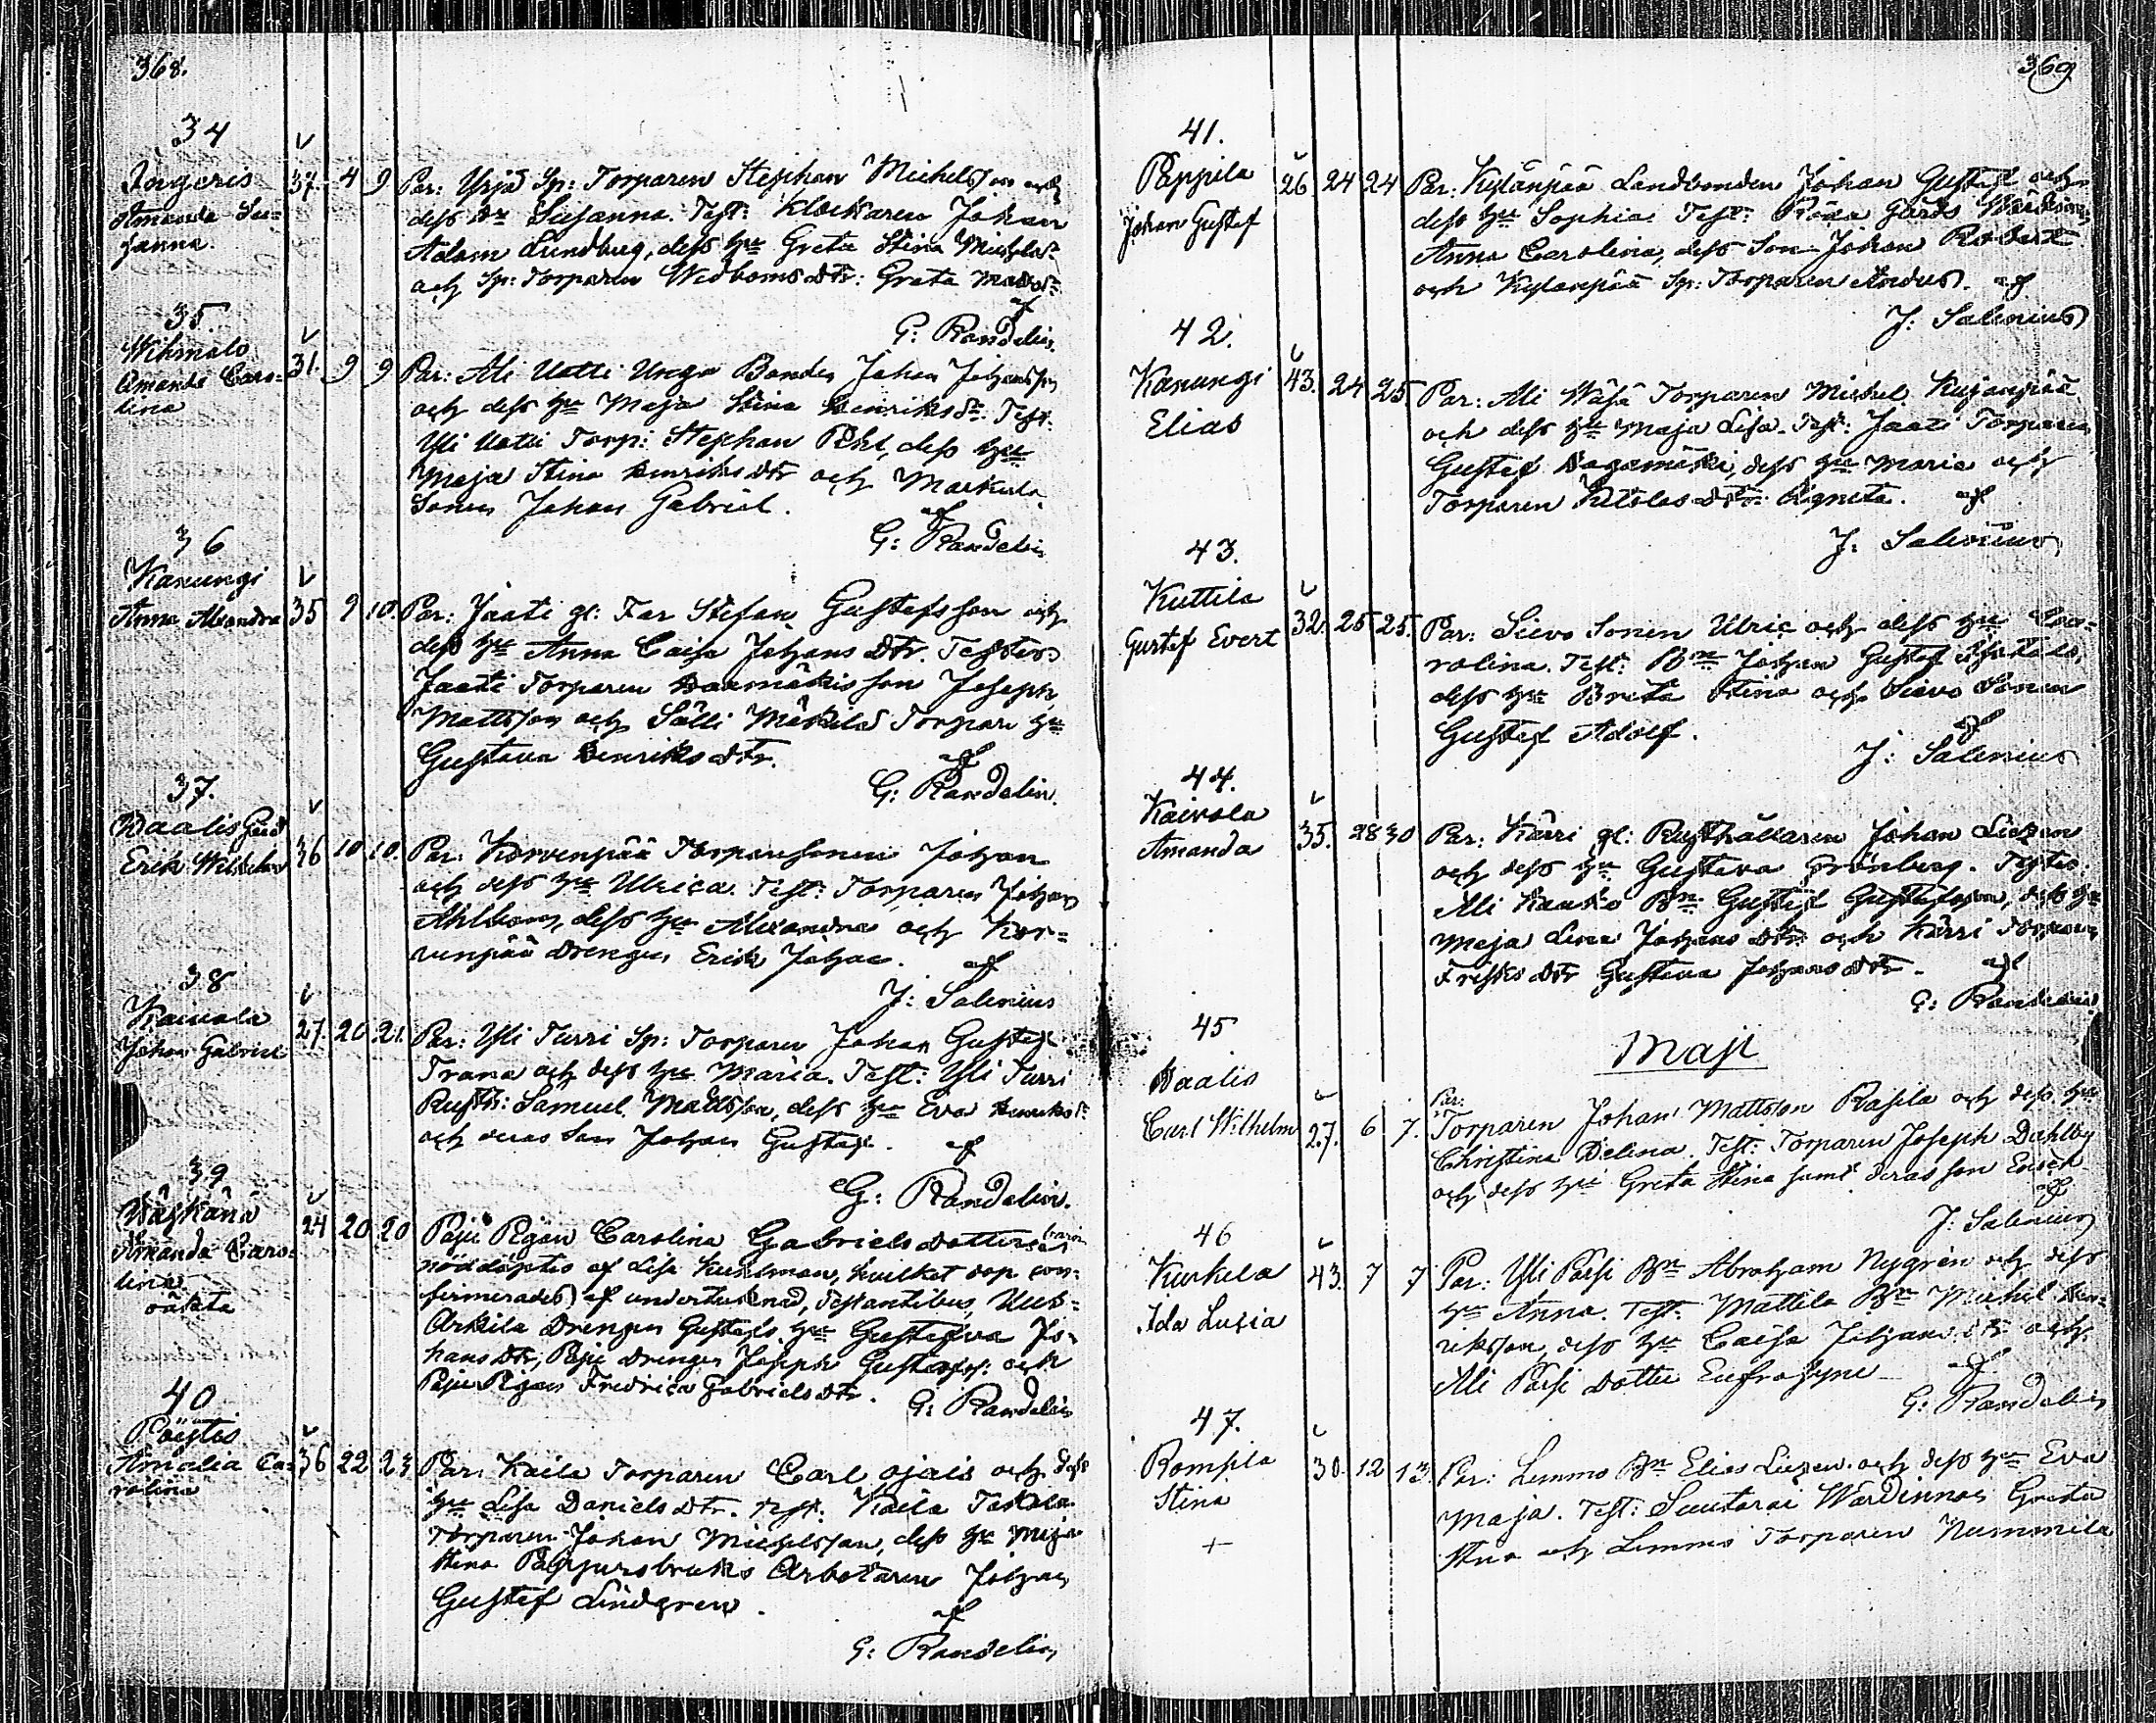 368.
34
Ingeris 37. 4 9 Par: Yrjä Sp: Torparen Stephan Michelsson och
Amanda Su=
sanna.
dess hu Susanna. Test: Klockaren Johan
Adam Lundberg, dess hu Greta Stina Michelsdr
och Sp: Torparen Wedboms dtr: Greta
af
G: Randelin.
35.
Wihmalo 31. 9 9 Par: Ali Uotti Unga Bonden Johan Johansson
Amanda Caro=
lina
och dess hu Maja Stina Henriksdr. Test:
Yli Uotti Torp: Stephan dess hu
Maja Stina Henriks dtr och Markula
Sonen Johan Gabriel.
af
G: Randelin
36
Kanungi
Anna Alexandra 35 9 10. Par: Jaati gl: Far Stefan Gustafsson och
dess hu Anna Caisa Johans dtr. Testes
Jaati Torparen son Joseph
Mattsson och Sälli Mäkilä Torpare hu
Gustava Henriks dtr.
af
G: Randelin.
37.
Waalis
Erik Wilhelm 36 10 10. Par: Korvenpää Torparesonen Johan
och dess hu Ulrica. Test: Torparen Johan
Ahlbom, dess hu Alexandra och Kor=
venpää Drengen Erik Johan.
af
J: Salenius
38
Kaivola 27. 20 21. Par: Yli Turri Sp: Torparen Johan Gustaf
Johan Gabriel
Trana och dess hu Maria. Test: Yli Turri
Rusth: Samuel Mattsson, dess hu Eva Henriksdr
och deras Son Johan Gustaf.
af
G: Randelin.
39
Wäskänä 24 20 20 Paju Pigan Carolina Gabriels dotters barn
Amanda Caro=
lina
oäkta
nöddöptes af Lisa Kuhlman, hvilket dop con=
firmerades af undertecknad, Testantibus
Arkila Drengen Gustafs hu Gustafva Jo=
hans dtr, Paju Drengen Joseph Gustafss: och
Paju Pigan Fredrica Gabriels dtr.
G: Randelin
40
Röystis
Amalia Ca= 36 22. 23 Par: Kaila Torparen Carl Ojais och dess
rolina
hu Lisa Daniels dtr. Test: Kaila Taskila
Torparen Johan Michelsson, dess hu Maja
Stina Pappersbruks Arbetaren Johan
Gustaf Lindgren.
af
G: Randelin
369
41.
Pappila 26 24 24 Par: Kylänpää Landbonden Johan Gustaf och
Johan Gustaf
dess hu Sophia. Test: Gårds Wärdinnan
Anna Carolina, dess Son Johan Robert
och Kylänpää Sp: Torparen Anders. af
J: Salenius
42.
Kanungi 43. 24 25. Par: Ali Wähä Torparen Michel Kujanpää
Elias
och dess hu Maja Lisa. Test: Jaati Torparen
Gustaf dess hu Maria och
Torparen dtr: Agneta. af
J: Salenius
43.
Kuttila
Gustaf Evert 32. 25 25. Par: Sievo Sonen Ulric och dess hu Ca=
rolina. Test: Bn Johan Gustaf
dess hu Breta Stina och Sievo Sonen
Gustaf Adolf.
af
J: Salenius
44.
Kaivola
Amanda 35. 28 30 Par: Kärri gl: Rusthållaren Johan Liezen
och dess hu Gustava Grönberg. Testes:
Ali Kausto Bn Gustaf Gustafsson, dess hu
Maja Lena Johans dtr och Kärri Torparen
Frisks dtr Gustava Johans dtr. af
G: Randelin
45
Maji
Waalis
Carl Wilhelm 27. 6 7. Par: Torparen Johan Mattsson Rasila och dess hu
Christina Delina. Test: Torparen Joseph Dahlby
och dess hu Greta Stina samt deras son Enoch
af
J: Salenius
46
Kurkela 43. 7 7 Par: Yli Passi Bn Abraham Nygren och dess
Ida Lusia
hu Anna. Test: Mattila Bn Michel Hen=
riksson, dess hu Caisa Johans dtr och
Ali Passi dotter Eufrosyne
af
G: Randelin
47.
Rompla 30. 12 13. Par: Lemmo Bn Elias Liezen och dess hu Eva
Stina
+
Maja. Test: Suutarai Wärdinnan Greta
Stina och Lemmo Torparen Nummila